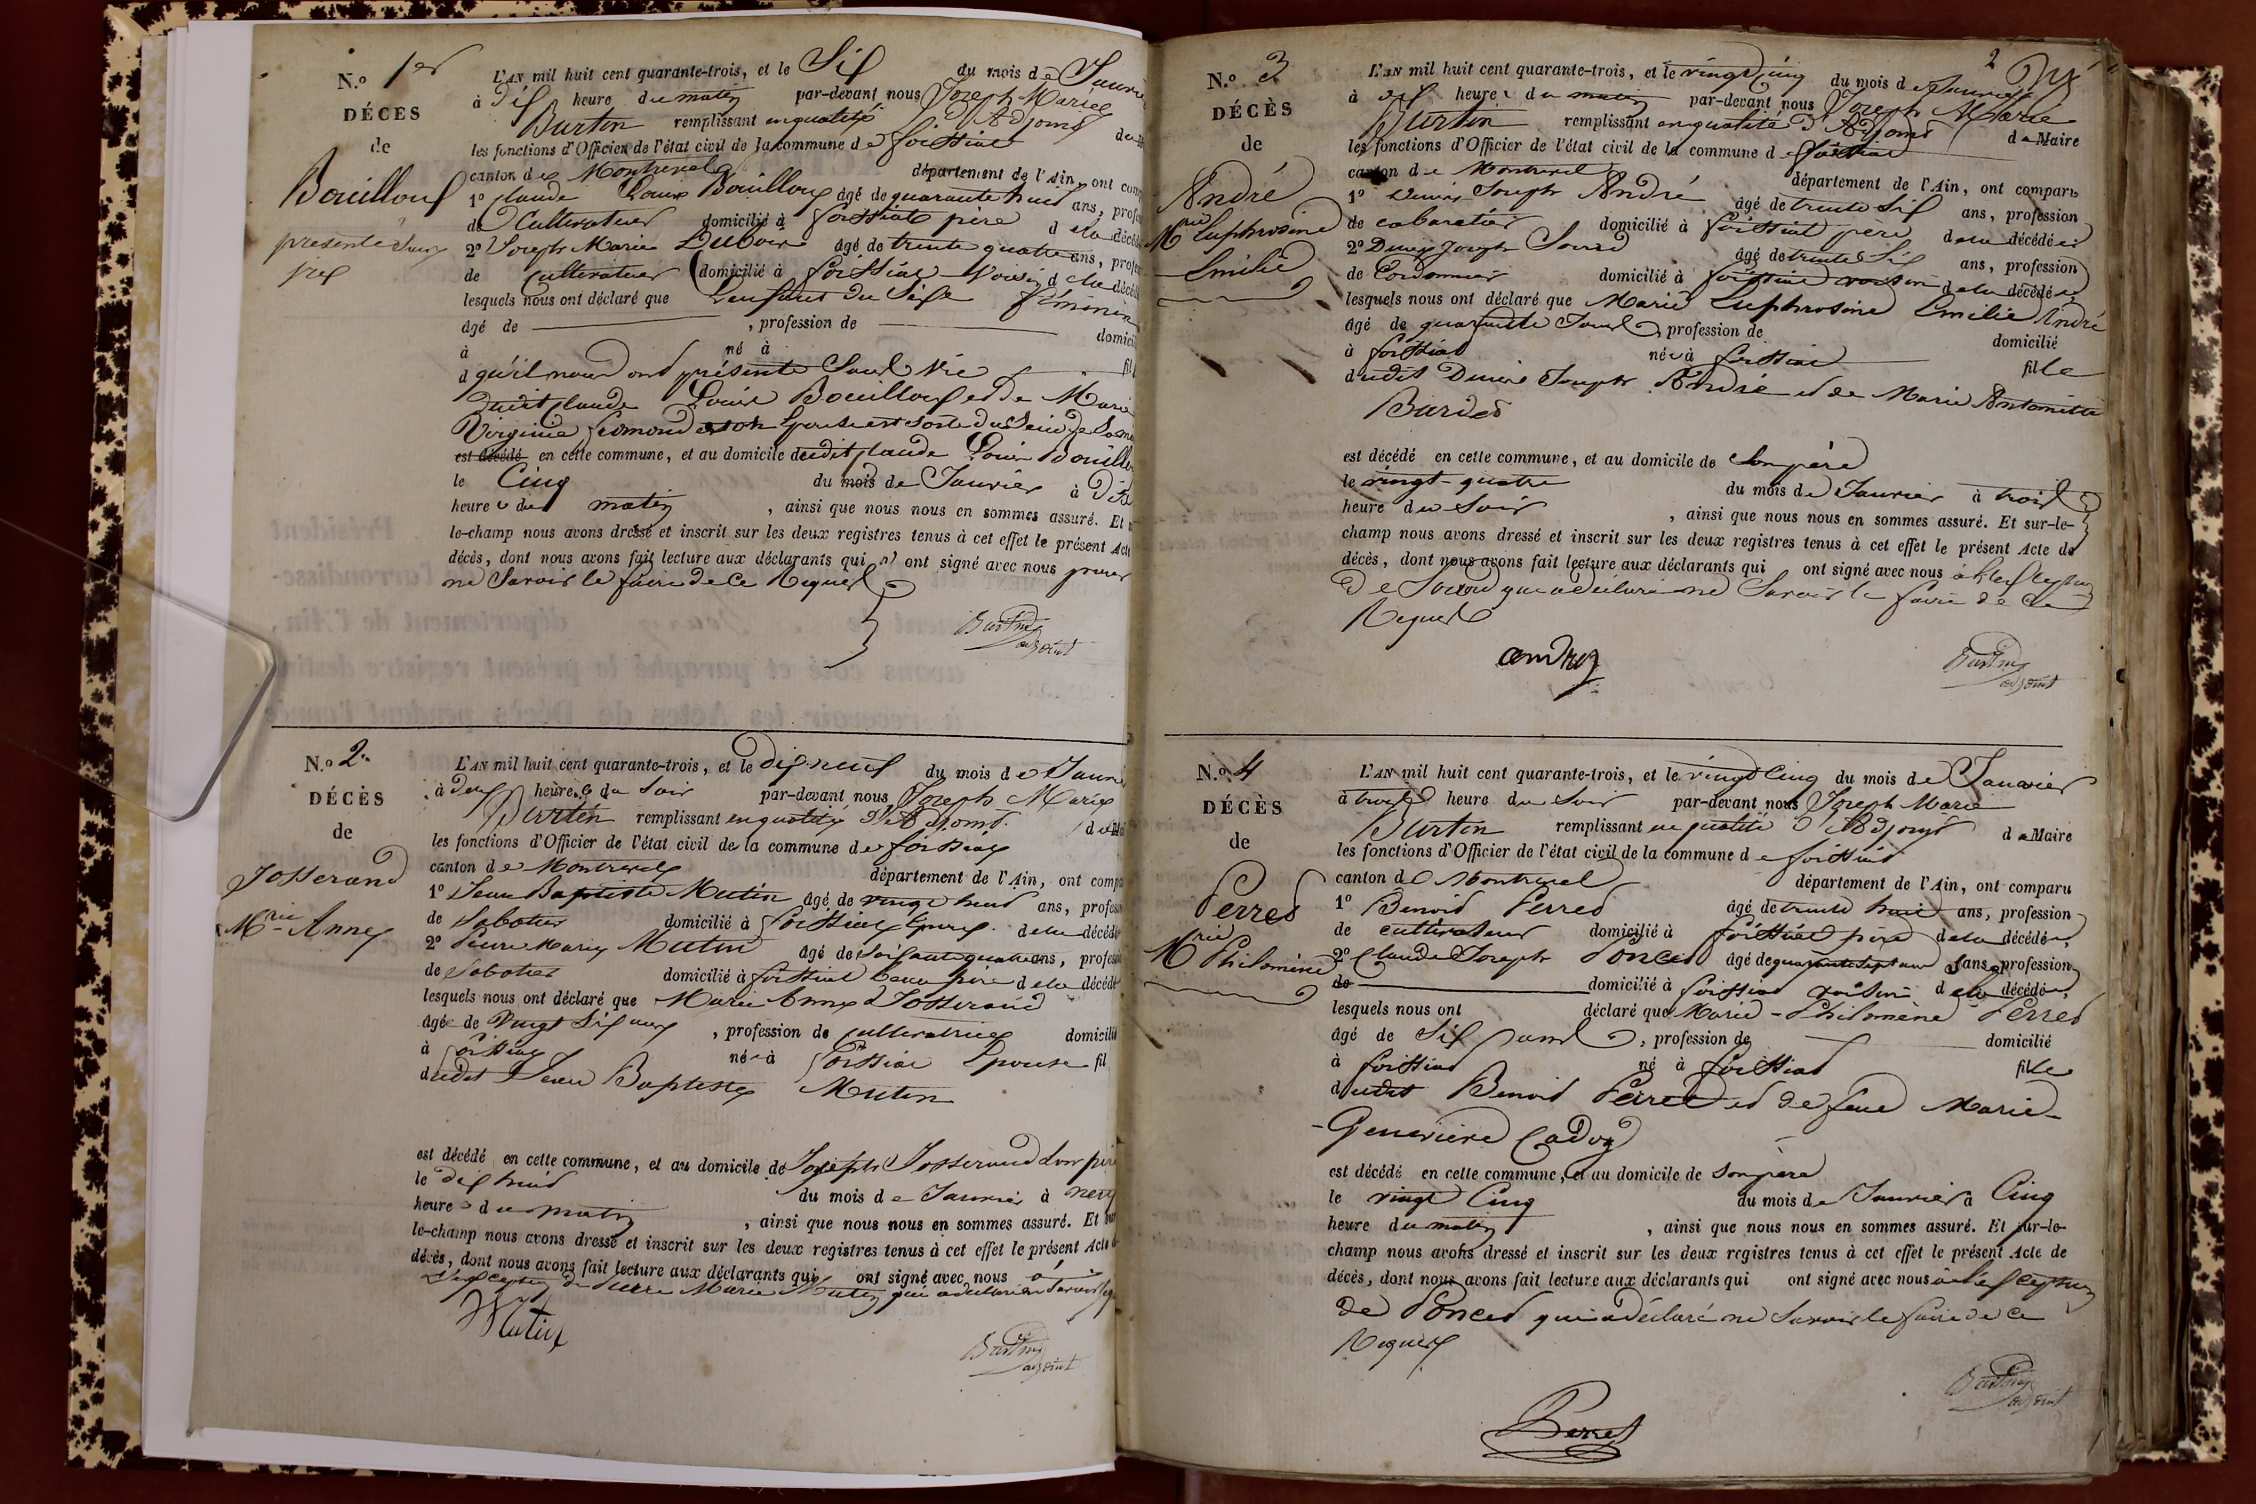 N.º 1er
DÉCES
de
Bouilloux
présenté sans
vie
L'AN mil huit cent quarante-trois, et le Six du mois de Janvier
à dix heure du matin par-devant nous Joseph Marie
Burtin remplissant en qualité d'Adjoint
les fonctions d'Officier de l'état civil de la commune de foissiat
canton de Montrevel département de l'Ain, ont comp
1º Claude Louis Bouilloux âgé de quarante huit ans, profes
de Cultivateur domicilié à foissiat père de la décédé
2º Joseph Marie Dubois âgé de trente quatre ans, profes
de cultivateur domicilié à foissiat voisin de la décéd
lesquels nous ont déclaré que L'enfant du Sexe féminin
âgé de , profession de domicil
à né à
d qu'il nous ont présenté Sans Vie fil
dudit Claude Louis Bouilloux et de Marie
Virginie son Epouse est sorti du Sein de Sa mè
est décédé en cette commune, et au domicile dudit Claude Louis Bouillou
le Cinq du mois de Janvier à dix
heure du matin , ainsi que nous nous en sommes assuré. Et
le-champ nous avons dressé et inscrit sur les deux registres tenus à cet effet le présent Acte
décès, dont nous avons fait lecture aux déclarants qui n' ont signé avec nous pour
ne Savoir le faire de ce Requis
Burtin
adjoint
N.º 2
DÉCÈS
de
Josserand
Mrie Anne
L'AN mil huit cent quarante-trois, et le dix neuf du mois de Janvi
à deux heure du Soir par-devant nous Joseph Marie
Burtin remplissant en qualité d'Adjoint
les fonctions d'Officier de l'état civil de la commune de foissiat
canton de Montrevel département de l'Ain, ont comp
1º Jean Baptiste Mutin âgé de vingt neuf ans, profes
de Sabotier domicilié à foissiat Epoux de la décédé
2º Pierre Marie Mutin âgé de Soixante quatre ans, profes
de Sabotier domicilié à foissiat beau père de la décédé
lesquels nous ont déclaré que Marie Anne Josserand
âgé de Vingt Six ans , profession de cultivatrice domicilié
à foissiat né à foissiat Epouse fil
dudit Jean Baptiste Mutin
est décédé en cette commune, et au domicile de Joseph Josserand Son père
le dix huit du mois de Janvier à neuf
heure du matin , ainsi que nous nous en sommes assuré. Et sur
le-champ nous avons dressé et inscrit sur les deux registres tenus à cet effet le présent Acte d
décès, dont nous avons fait lecture aux déclarants qui ont signé avec nous à
L'exception de Pierre Marie Mutin qui a déclaré ne Savoir
Mutin
Burtin
adjoint
2
N.º 3
DÉCÈS
de
André
Mrie Euphrosine
Emilie
L'AN mil huit cent quarante-trois, et le vingt Cinq du mois de Janvier
à dix heure du matin par-devant nous Joseph Marie
Burtin remplissant en qualité d'Adjoint de Maire
les fonctions d'Officier de l'état civil de la commune de foissiat
canton de Montrevel département de l'Ain, ont comparu
1º Denis Joseph André âgé de trente Six ans, profession
de cabaretier domicilié à foissiat père de la décédée
2º Denis Joseph âgé de trente Six ans, profession
de Cordonnier domicilié à foissiat voisin de la décédée
lesquels nous ont déclaré que Marie Euphrosine Emilie André
âgé de quarante Jours , profession de domicilié
à foissiat né à foissiat fille
dudit Denis Joseph André et de Marie Antoinette
Burdet
est décédé en cette commune, et au domicile de Son père
le vingt-quatre du mois de Janvier à trois
heure du Soir , ainsi que nous nous en sommes assuré. Et sur-le-
champ nous avons dressé et inscrit sur les deux registres tenus à cet effet le présent Acte de
décès, dont nous avons fait lecture aux déclarants qui ont signé avec nous à L'exception
de qui a déclaré ne Savoir le faire de ce
Requis
andrez
Burtin
adjoint
N.º 4
DÉCÈS
de
Perret
Mrie Philomène
L'AN mil huit cent quarante-trois, et le vingt Cinq du mois de Janvier
à trois heure du Soir par-devant nous Joseph Marie
Burtin remplissant en qualité d'Adjoint de Maire
les fonctions d'Officier de l'état civil de la commune de foissiat
canton de Montrevel département de l'Ain, ont comparu
1º Benoit Perret âgé de trente huit ans, profession
de cultivateur domicilié à foissiat père de la décédée,
2º Claude Joseph Poncet âgé de quarante Sept ans ans, profession
de domicilié à foissiat voisin de la décédée,
lesquels nous ont déclaré que Marie-Philomène Perret
âgé de Six ans , profession de domicilié
à foissiat né à foissiat fille
dudit Benoit Perret et de feue Marie-
-Geneviève Cadoz
est décédé en cette commune, et au domicile de Son père
le vingt Cinq du mois de Janvier à Cinq
heure du matin , ainsi que nous nous en sommes assuré. Et sur-le-
champ nous avons dressé et inscrit sur les deux registres tenus à cet effet le présent Acte de
décès, dont nous avons fait lecture aux déclarants qui ont signé avec nous à L'exception
de Poncet qui a déclaré ne Savoir le faire de ce
Requis
Burtin
adjoint
Perret